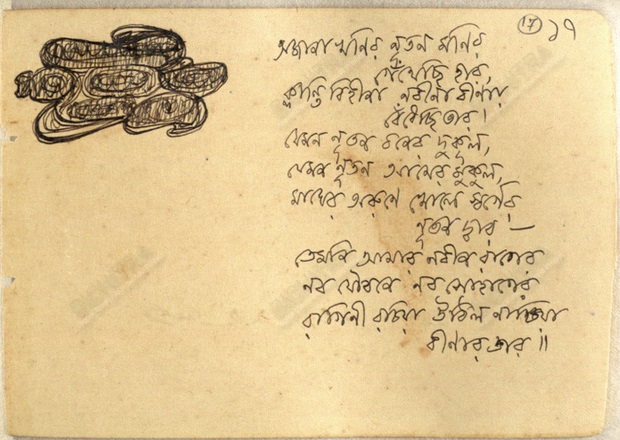 (১৭) ১৭
অজানা খনির নূতন মণির
গেঁথেছি হার,
ক্লান্তি বিহীনা নবীনা বীণায়
বেঁধেছি তার।
যেমন নূতন বনের দুকূল,
যেমন নূতন আমের মুকুল,
মাঘের অরুণে খোলে স্বর্গের
নূতন দ্বার —
তেমনি আমার নবীন রাগের
নব যৌবনে নব সোহাগের
রাগিণী রচিয়া উঠিল নাচিয়া
বীণার তার॥